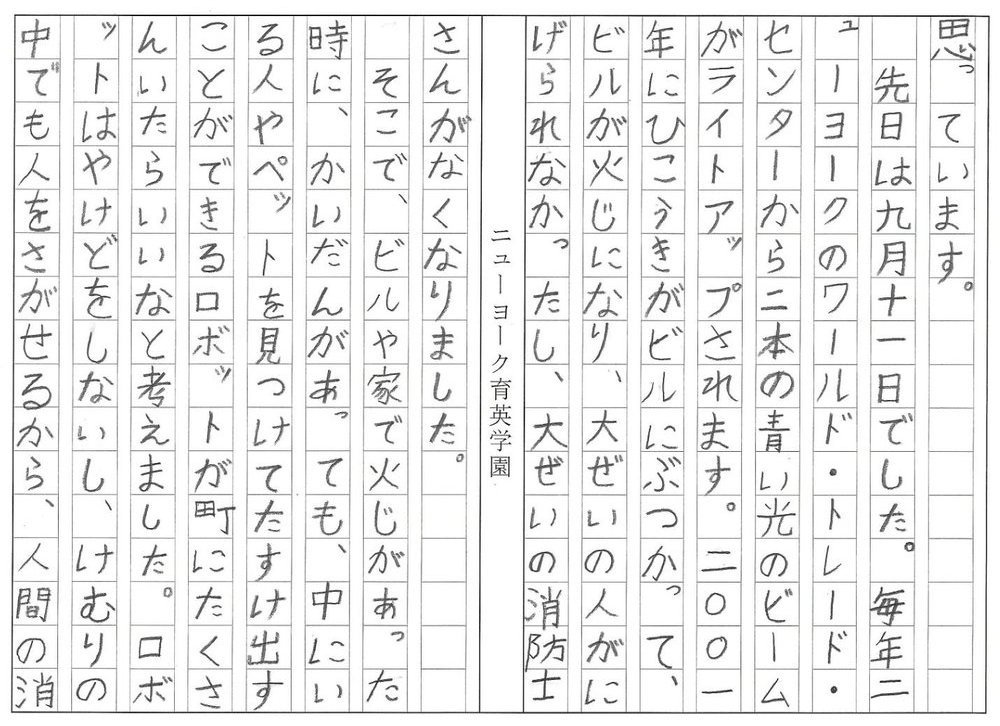 思っています。
先日は九月十一日でした。毎年ニ
ューヨークのワールド・トレード・
センターから二本の青い光のビーム
がライトアップされます。二〇〇一
年にひこうきがビルにぶつかって、
ビルが火じになり、大ぜいの人がに
げられなかったし、大ぜいの消防士
ニューヨーク育英学園
さんがなくなりました。
そこで、ビルや家で火じがあった
時に、かいだんがあっても、中にい
る人やペットを見つけてたすけ出す
ことができるロボットが町にたくさ
んいたらいいなと考えました。ロボ
ットはやけどをしないし、けむりの
中でも人をさがせるから、人間の消